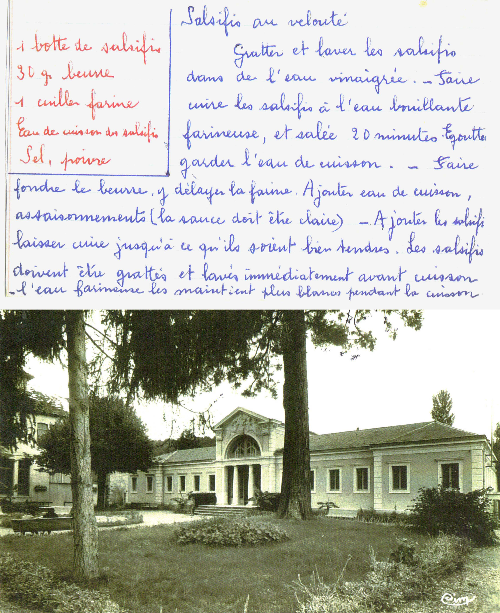 Salsifis au velouté
1 botte de salsifis
30 g beurre
1 cuiller farine
Eau de cuisson des salsifis
Sel, poivre
Gratter et laver les salsifis
dans de l'eau vinaigrée. - Faire
cuire les salsifis à l'eau bouillante
farineuse, et salée 20 minutes Egoutter
garder l'eau de cuisson. - Faire
fondre le beurre, y délayer la farine. Ajouter eau de cuisson,
assaisonnements (la sauce doit être claire) - Ajouter les salsifis
laisser cuire jusqu'à ce qu'ils soient bien tendres. Les salsifis
doivent être grattés et lavés immédiatement avant cuisson
- l'eau farineuse les maintient plus blancs pendant la cuisson